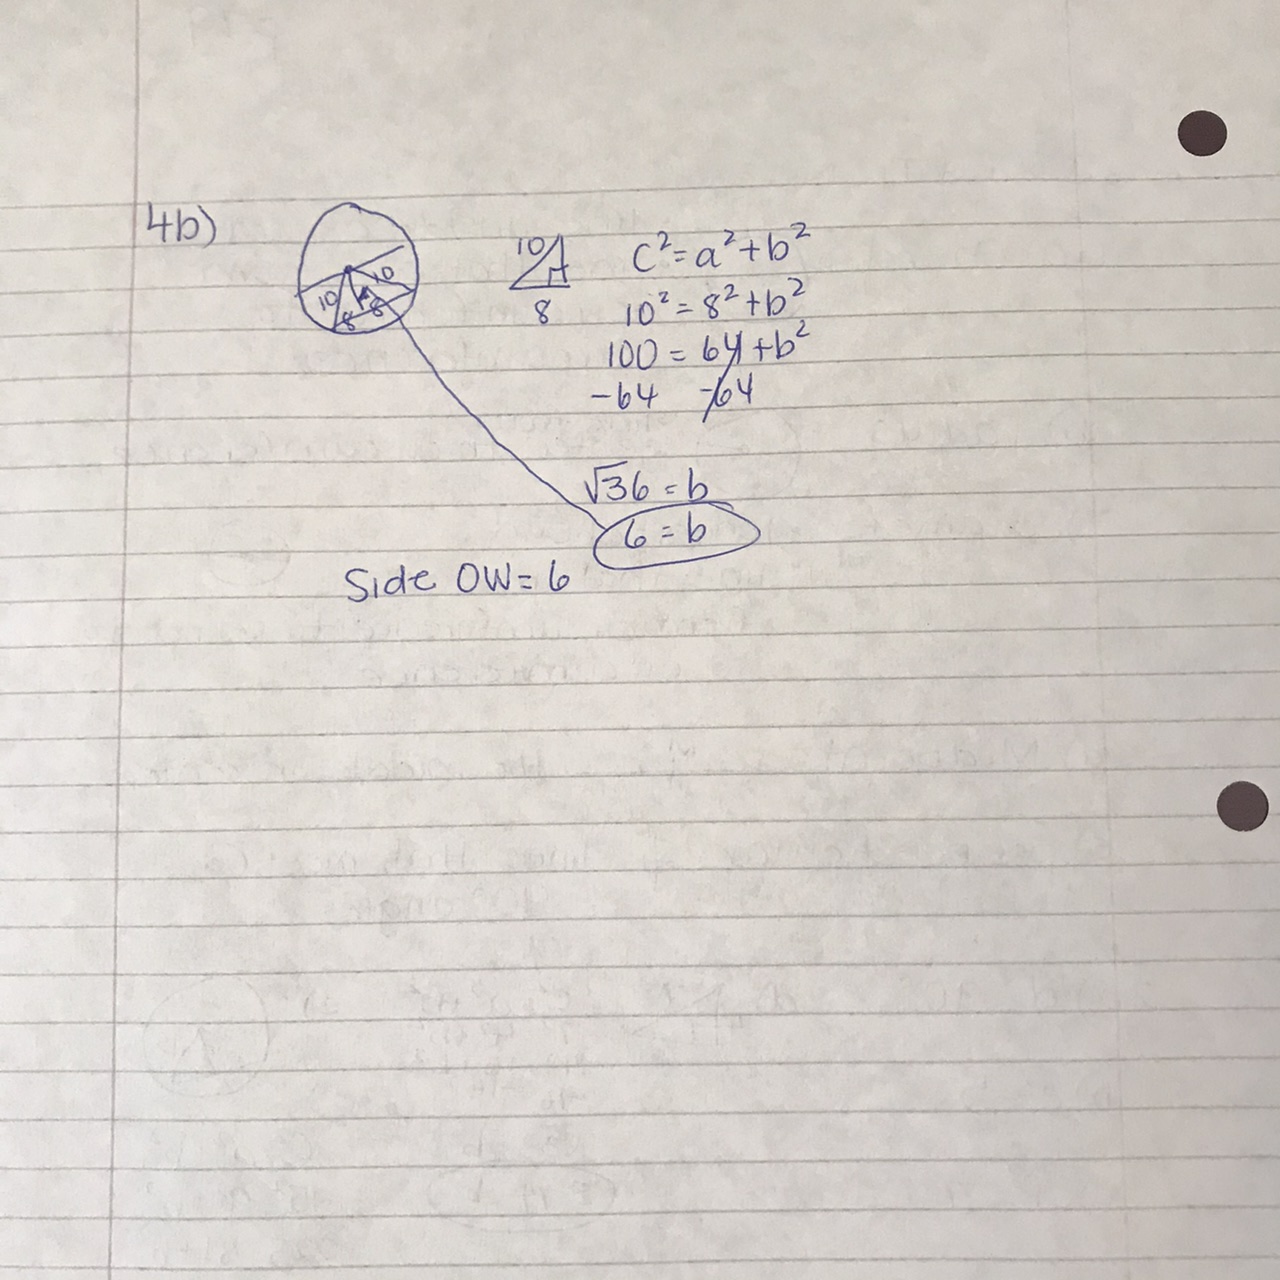 4b)
10 10 8 8
10
8
c²=a²+b²
10²=8²+b²
100=64+b²
-64 -64
√36=b
6=b
Side OW=6